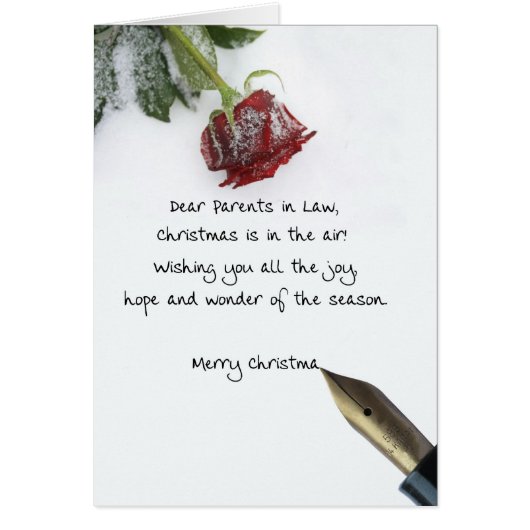 Dear Parents in Law,
Christmas is in the air!
Wishing you all the joy,
hope and wonder of the season.
Merry Christma